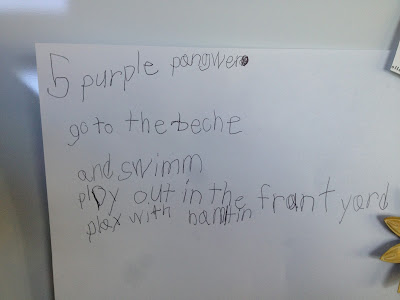 5 purple pangwen
go to the beche
and swimm
play out in the frant yard
play with hamtin